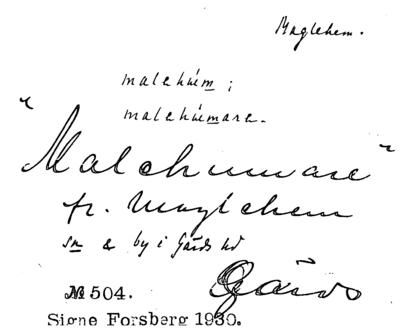 Maglehem.
malehùem;
malehùemare.
"Malehumare"
fr. Maglehem
sn & by i Gärds hd
Gärds
№ 504.
Signe Forsberg 1930.